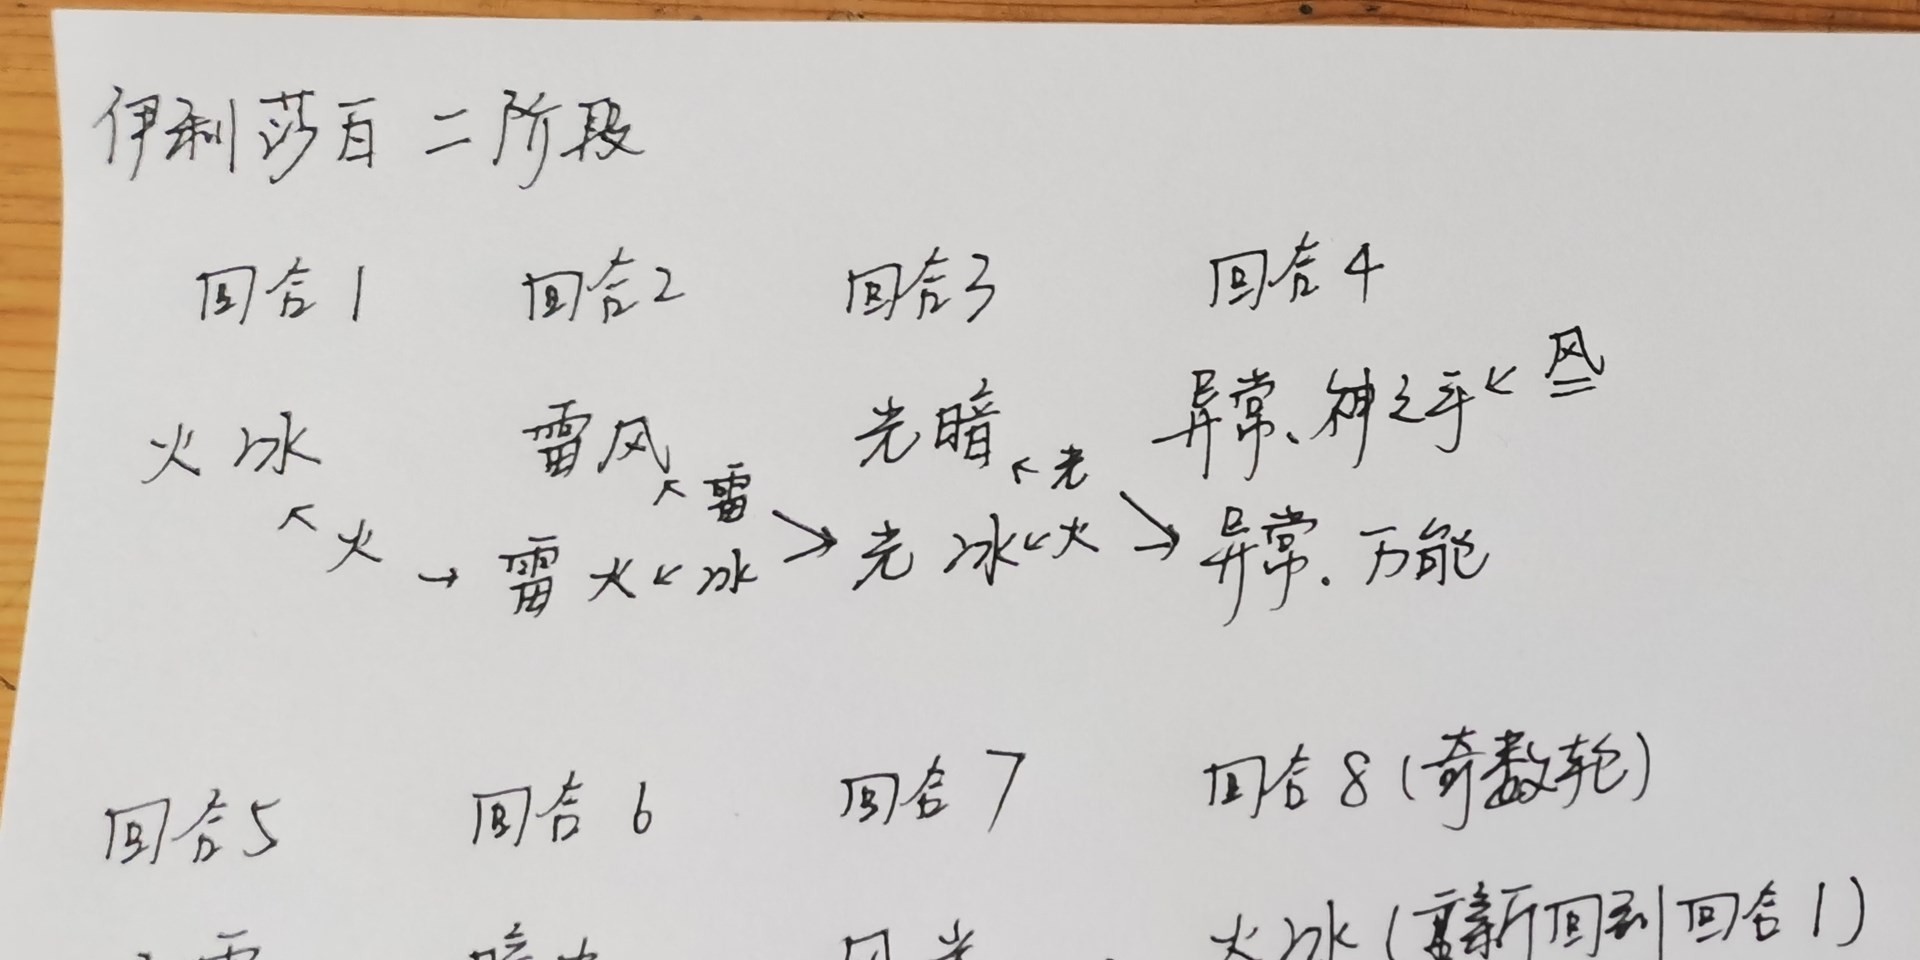 伊利莎百 二阶段
回合1 回合2 回合3 回合4
火 冰 雷风 光暗 异常、神之手 ← 风
↖ 火 ↖ 雷 ↖ 光
→ 雷 火 ← 冰 → 光 冰 ← 火 → 异常、万能
回合5 回合6 回合7 回合8 (奇数轮)
火冰 (重新回到回合1)